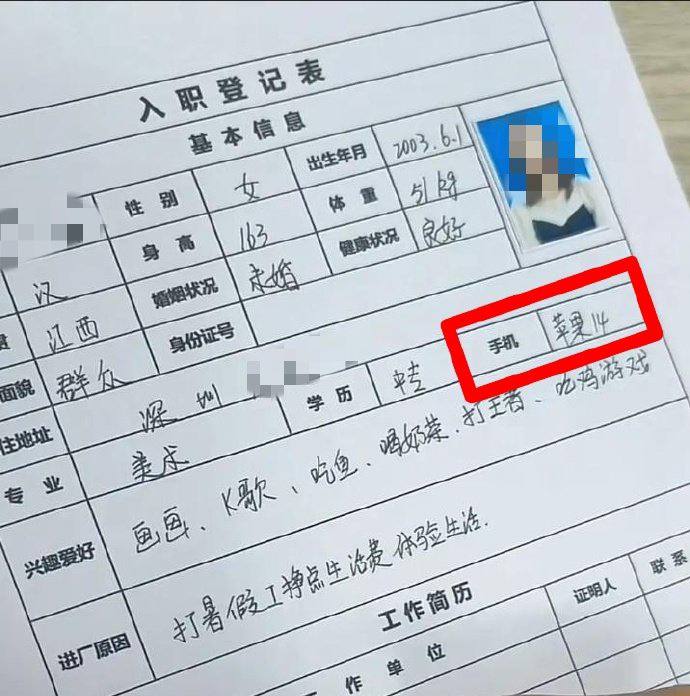 入职登记表
基本信息
性别 女 出生年月 2003.6.1
汉 身高 163 体重 51kg
江西 婚姻状况 未婚 健康状况 良好
面貌 群众 身份证号 手机 苹果14
住地址 深圳 学历 中专
专业 美术
兴趣爱好 画画、K歌、吃鱼、喝奶茶、打王者、吃鸡游戏
进厂原因 打暑假工挣点生活费体验生活.
工作简历
工作单位 证明人 联系